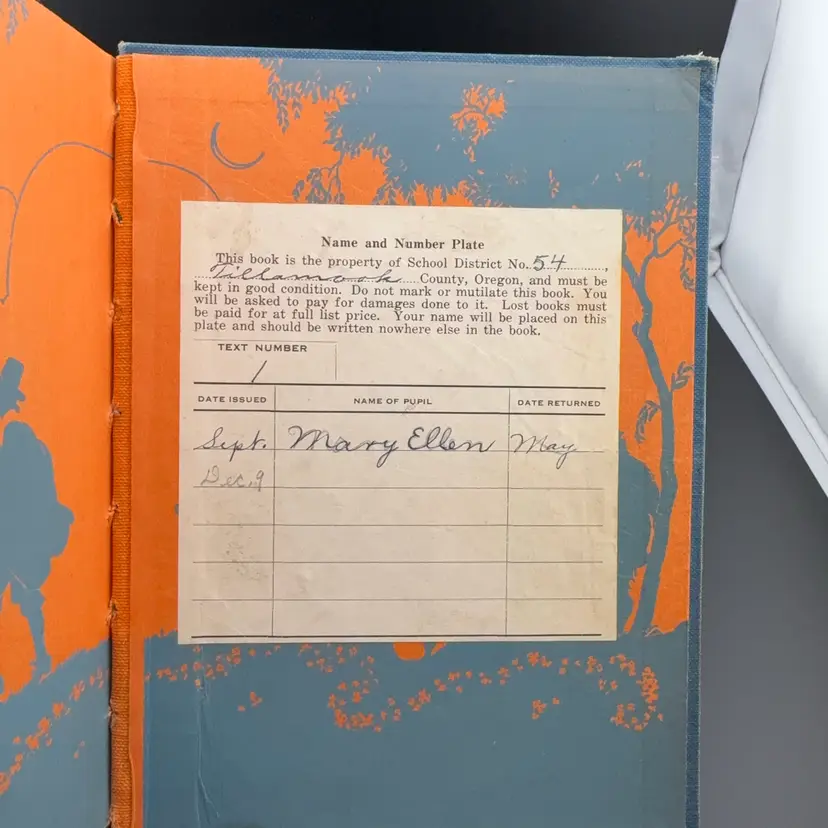 Name and Number Plate
This book is the property of School District No. 54,
Tillamook County, Oregon, and must be
kept in good condition. Do not mark or mutilate this book. You
will be asked to pay for damages done to it. Lost books must
be paid for at full list price. Your name will be placed on this
plate and should be written nowhere else in the book.
TEXT NUMBER
1
DATE ISSUED NAME OF PUPIL DATE RETURNED
Sept. Mary Ellen May
Dec. 9